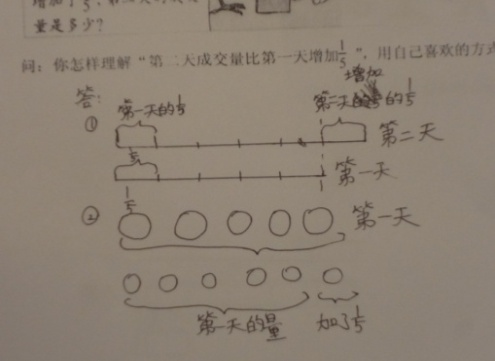 增加了1/5，第二天的成交
量是多少？
问：你怎样理解“第二天成交量比第一天增加1/5”，用自己喜欢的方式
答：
增加
第一天的1/5
第二天的1/5
①
第二天
1/5
第一天
1/5
②
第一天
第一天的量
加了1/5